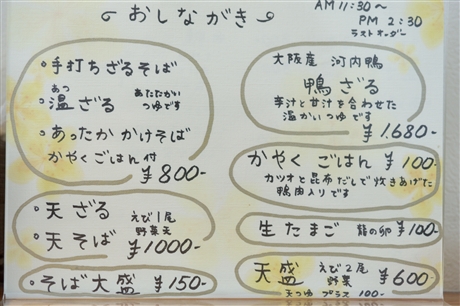 おしながき
AM 11:30〜
PM 2:30
ラストオーダー
・手打ちざるそば
・温ざる あたたかい
あつ
つゆです
・あったか かけそば
かやくごはん付
¥800-
・天ざる えび1尾
野菜天
・天そば ¥1000-
・そば大盛 ¥150-
大阪産 河内鴨
鴨ざる
辛汁と甘汁を合わせた
温かいつゆです
¥1,680-
かやくごはん ¥100-
カツオと昆布だしで炊きあげた
鴨肉入りです
生たまご 龍の卵 ¥100-
天盛 えび2尾 ¥600-
野菜
天つゆ プラス 100-